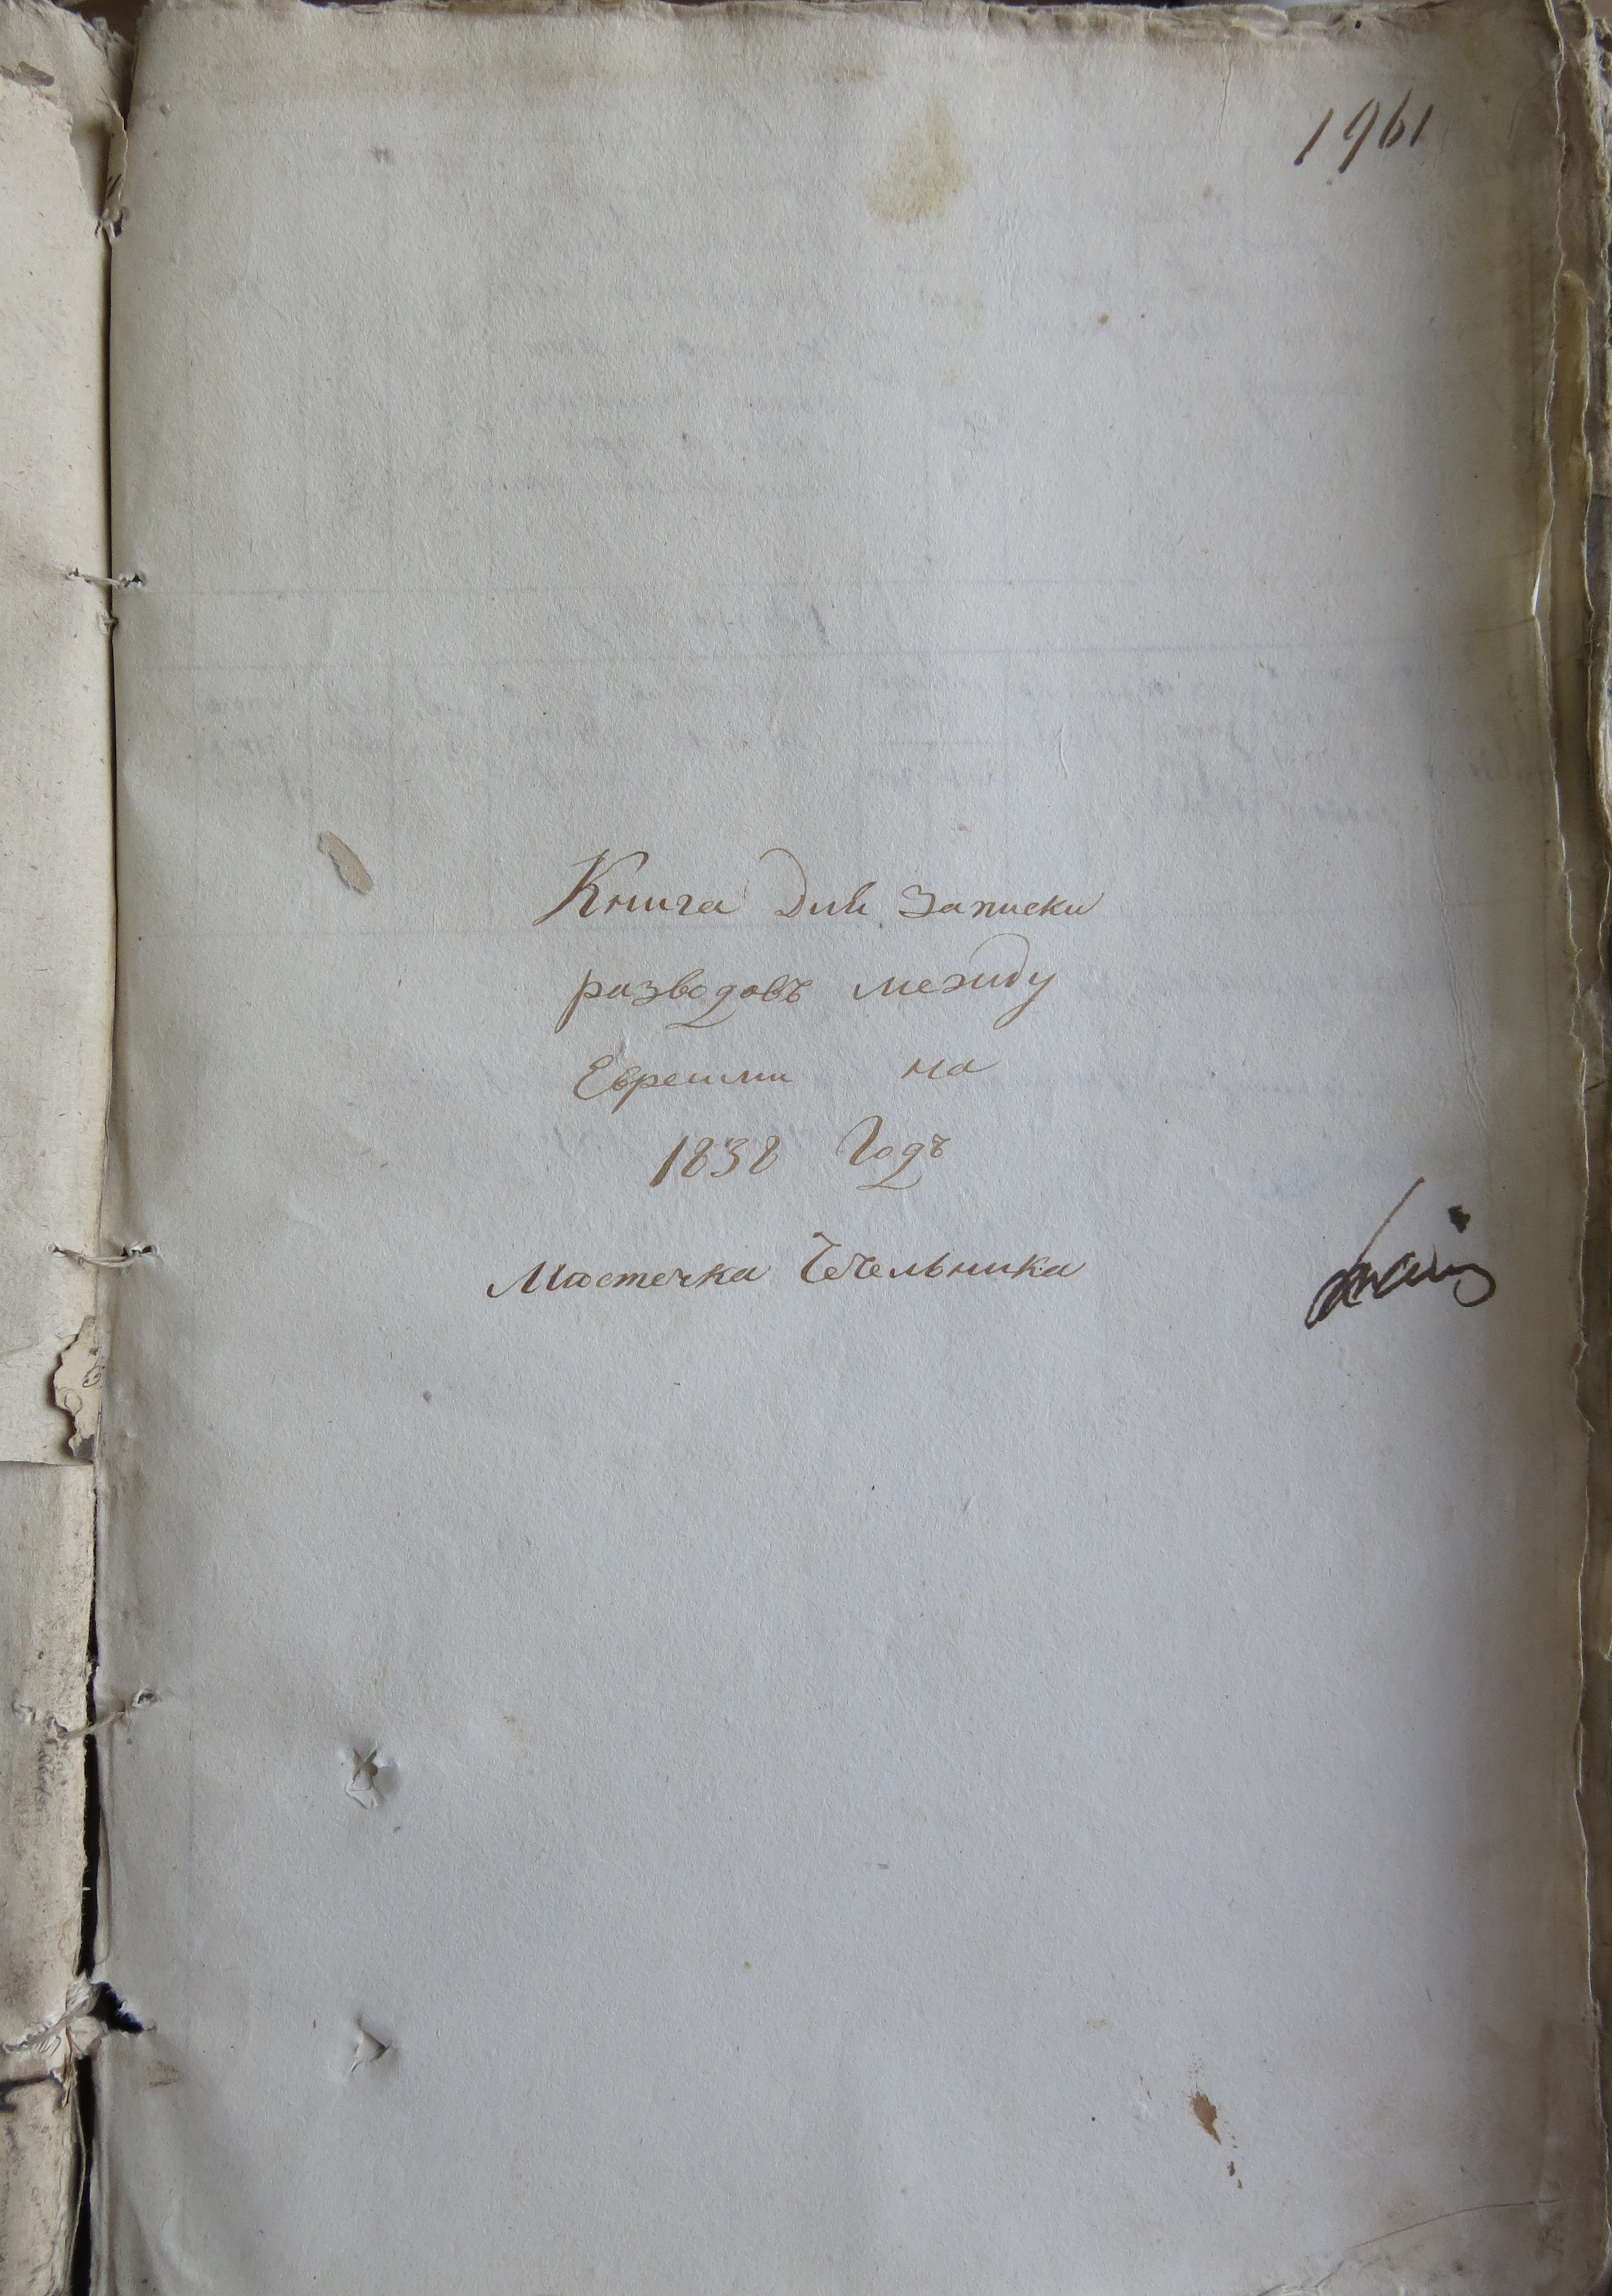 1961
Книга Для Записки
разводовъ между
Евреями на
1838 Годъ
Мѣстечка Чечельника